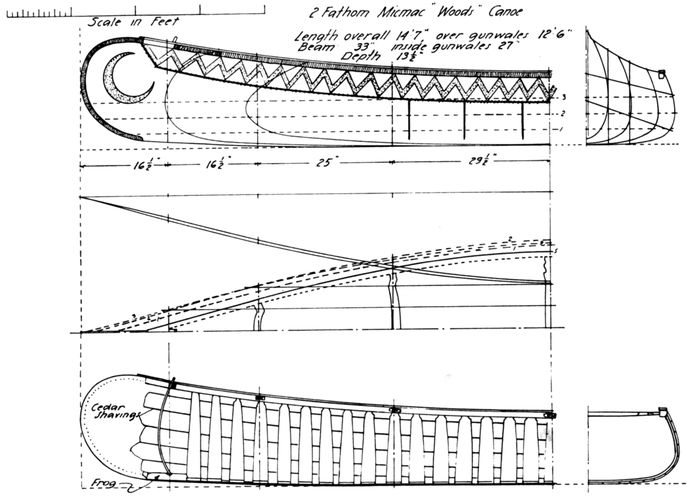 2 Fathom Micmac "Woods" Canoe
Scale in Feet
Length overall 14'7" over gunwales 12'6"
Beam 33" inside gunwales 27"
Depth 13½"
3
2
1
16½" 16½" 25" 29½"
2
1
3
3
Cedar
Shavings
Frog